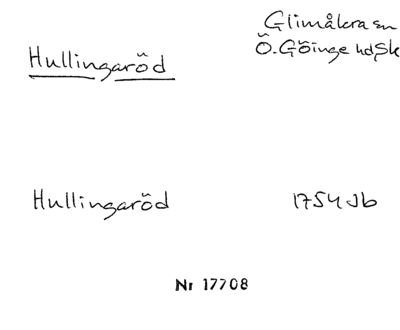 Glimåkra sn
Hullingaröd
Ö. Göinge hd, Sk
Hullingaröd
1754 Jb
Nr 17708